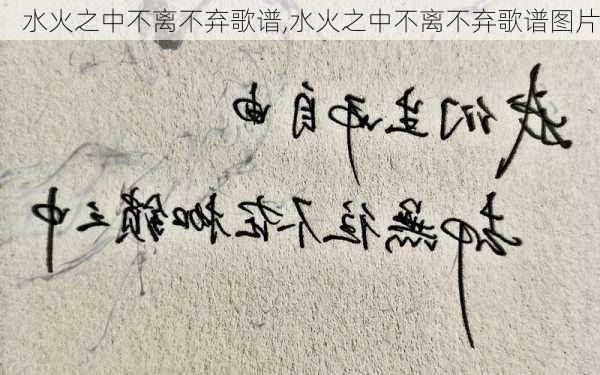 水火之中不离不弃歌谱,水火之中不离不弃歌谱图片
我们生而自由
却無往不在枷鎖之中